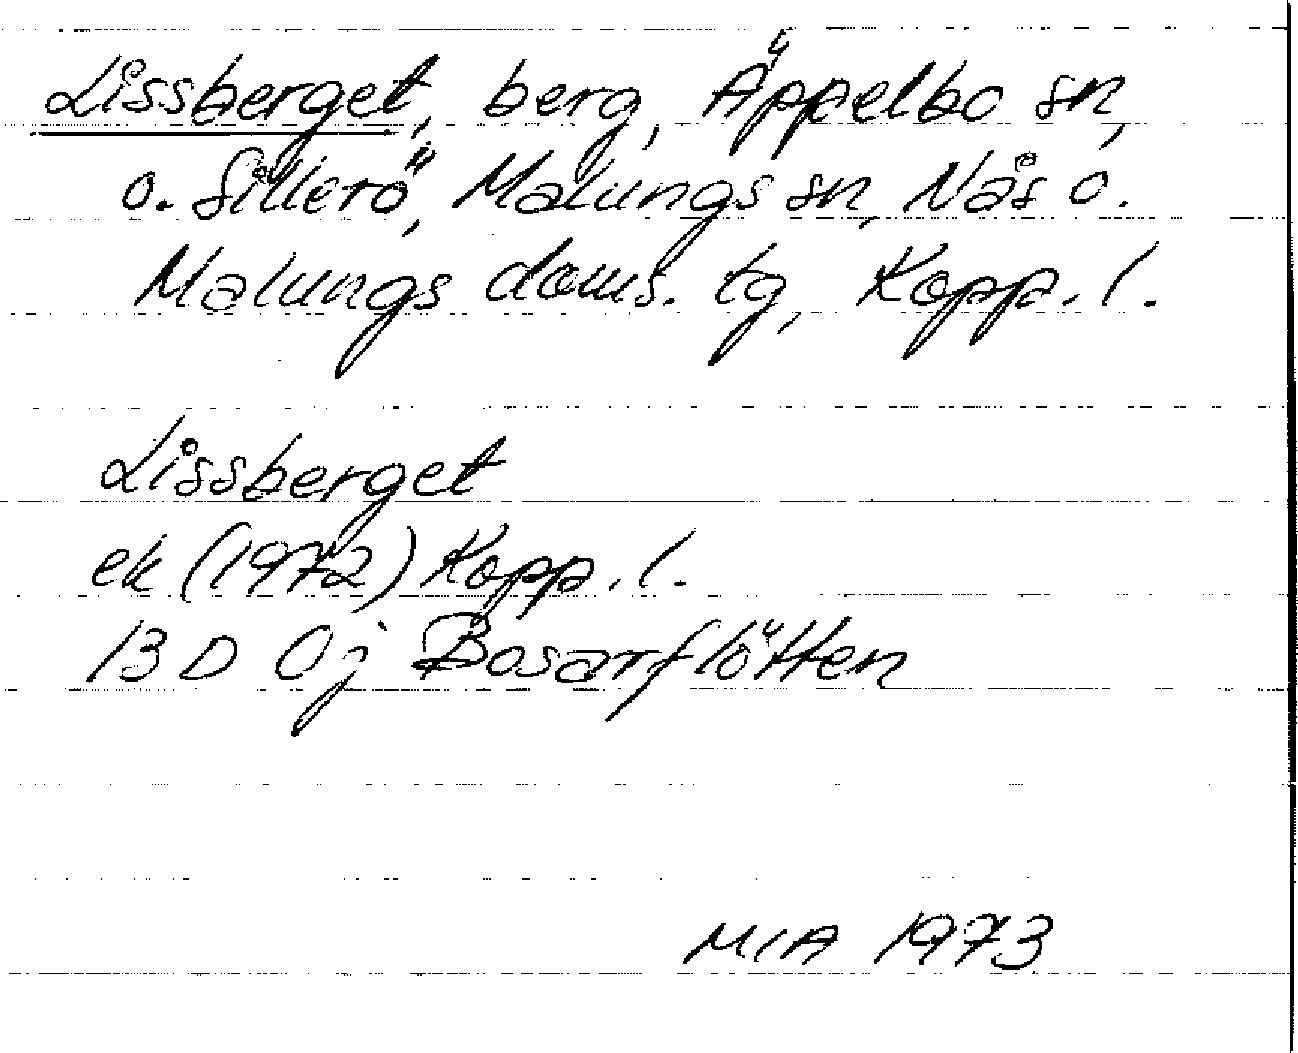 Lissberget, berg, Äppelbo sn,
o. Sillerö, Malungs sn, Nås o.
Malungs doms. tg, Kopp. l.
Lissberget
ek (1972) Kopp. l.
13 D 0j Bosarflötten
MIA 1973